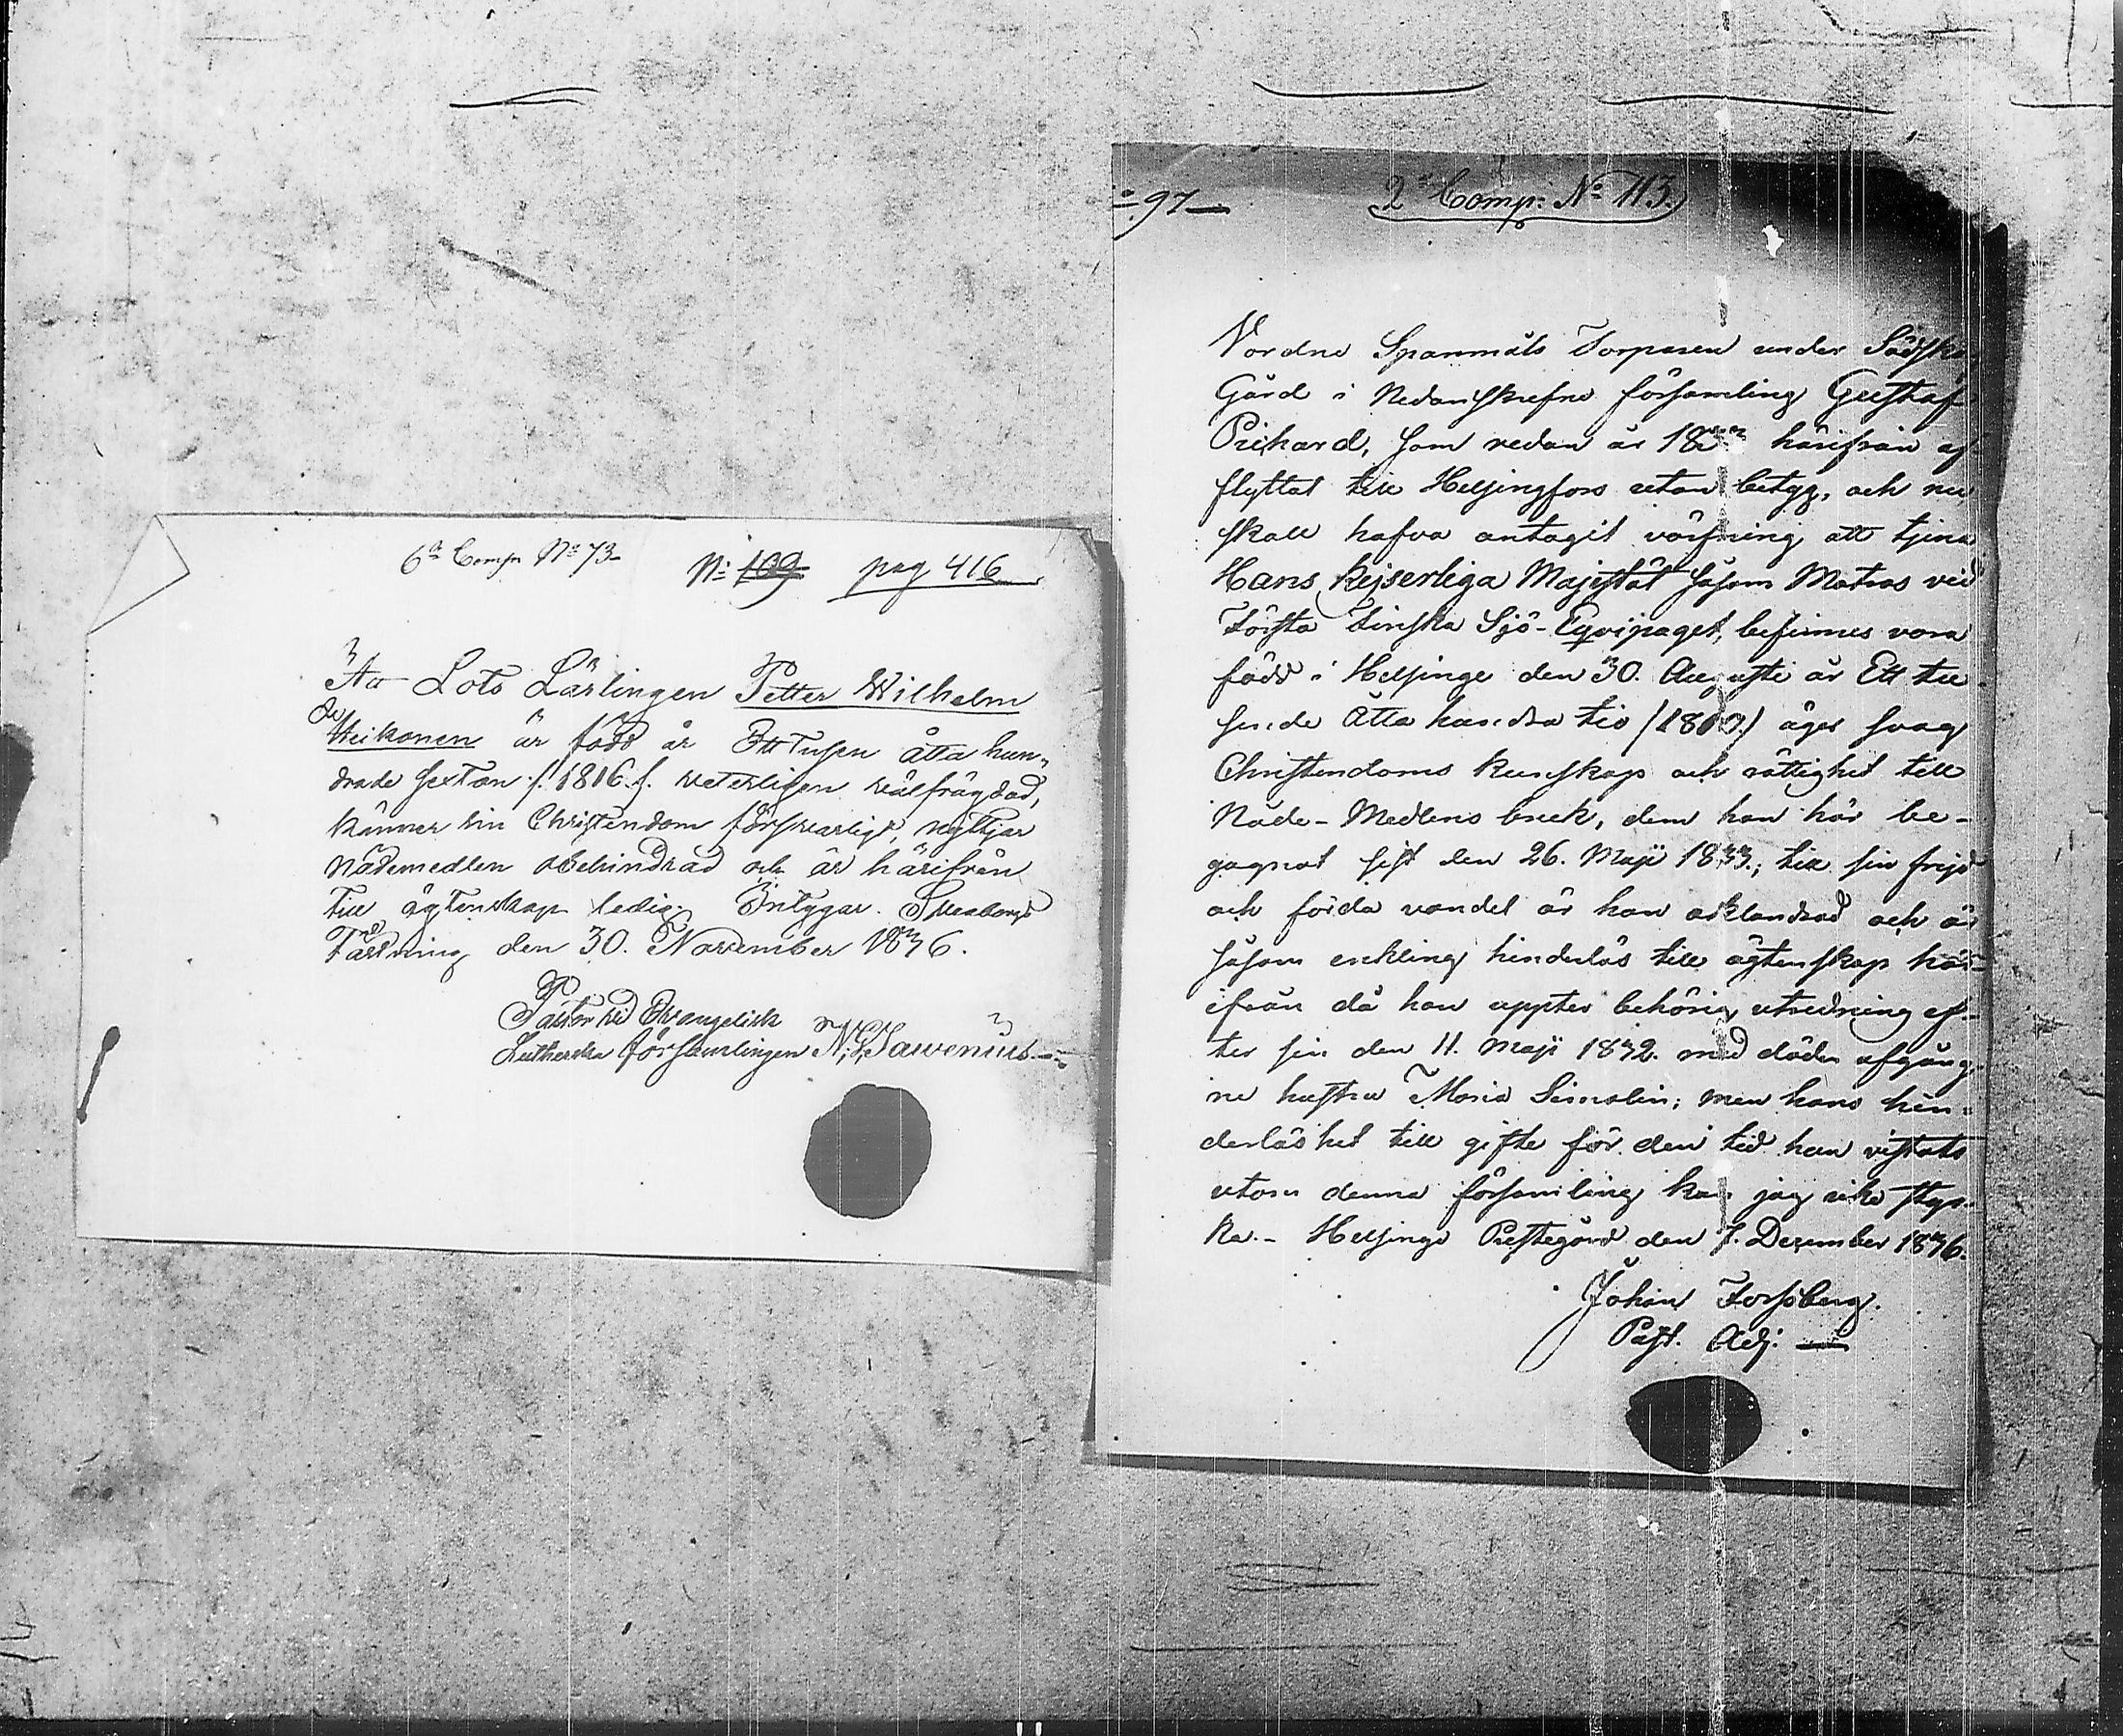 6te Comp No 73
No 109 pag 416
Att Lots Lärlingen Petter Wilhelm
Heikonen är född år Ett Tusen åtta hun-
drade sexton /:1816:/ veterligen välfrägdad,
känner sin Christendom försvarligt, nyttjar
nådemedlen obehindrad och är härifrån
till ägtenskap ledig. Intygar. Sveaborgs
Fästning den 30. November 1836.
Pastor vid Evangelisk
Lutherska församlingen
No 97
2a Comp: No 113.
Vordne Spanmåls Torparen under
Gård i Nedanskrefne församling Gustaf
Prihard, som redan år härifrån af-
flyttat till Helsingfors utan betyg, och nu
skall hafva antagit värfning att tjena
Hans Kejserliga Majestät såsom Matros vid
Första Finska Sjö-Eqvipaget, befinnes vara
född i Helsinge den 30. Augusti år Ett tu-
sende Åtta hundra tio /1810./ äger svag
Christendoms kunskap och rättighet till
Nåde-Medlens bruk, dem han här be-
gagnat sist den 26. Maji 1833.; till sin frejd
och förda vandel är han oklandrad och är
såsom enkling hinderlös till ägtenskap här-
ifrån då han uppter behörig utredning ef-
ter sin den 11. Maji 1832. med döden afgång-
ne hustru Maria Simolin; men hans hin-
derlöshet till gifte för den tid han vistats
utom denna församling kan jag icke styr-
ka.- Helsinge Prestegård den 7. December 1836.
Johan Forssberg.
Past. Adj.